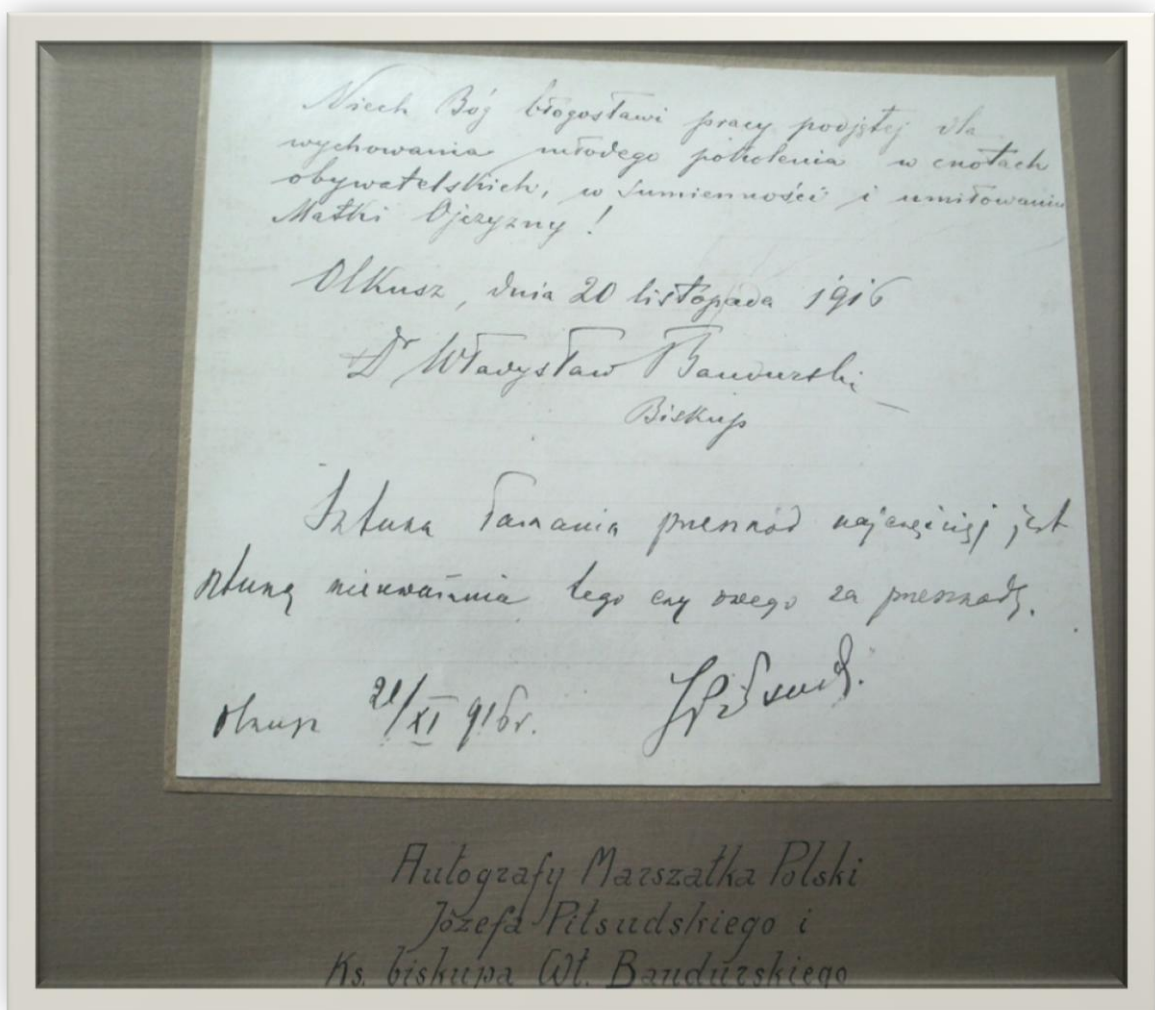 Niech Bóg błogosławi pracy podjętej dla
wychowania młodego pokolenia w cnotach
obywatelskich, w sumienności i umiłowaniu
Matki Ojczyzny!
Olkusz, dnia 20 listopada 1916
Dr Władysław Bandurski
Biskup
Sztuka łamania przeszkód najczęściej jest
sztuką nieuważania tego czy owego za przeszkodę.
Olkusz 20/XI 916r.
JPiłsudski
Autografy Marszałka Polski
Józefa Piłsudskiego i
Ks. biskupa Wł. Bandurskiego